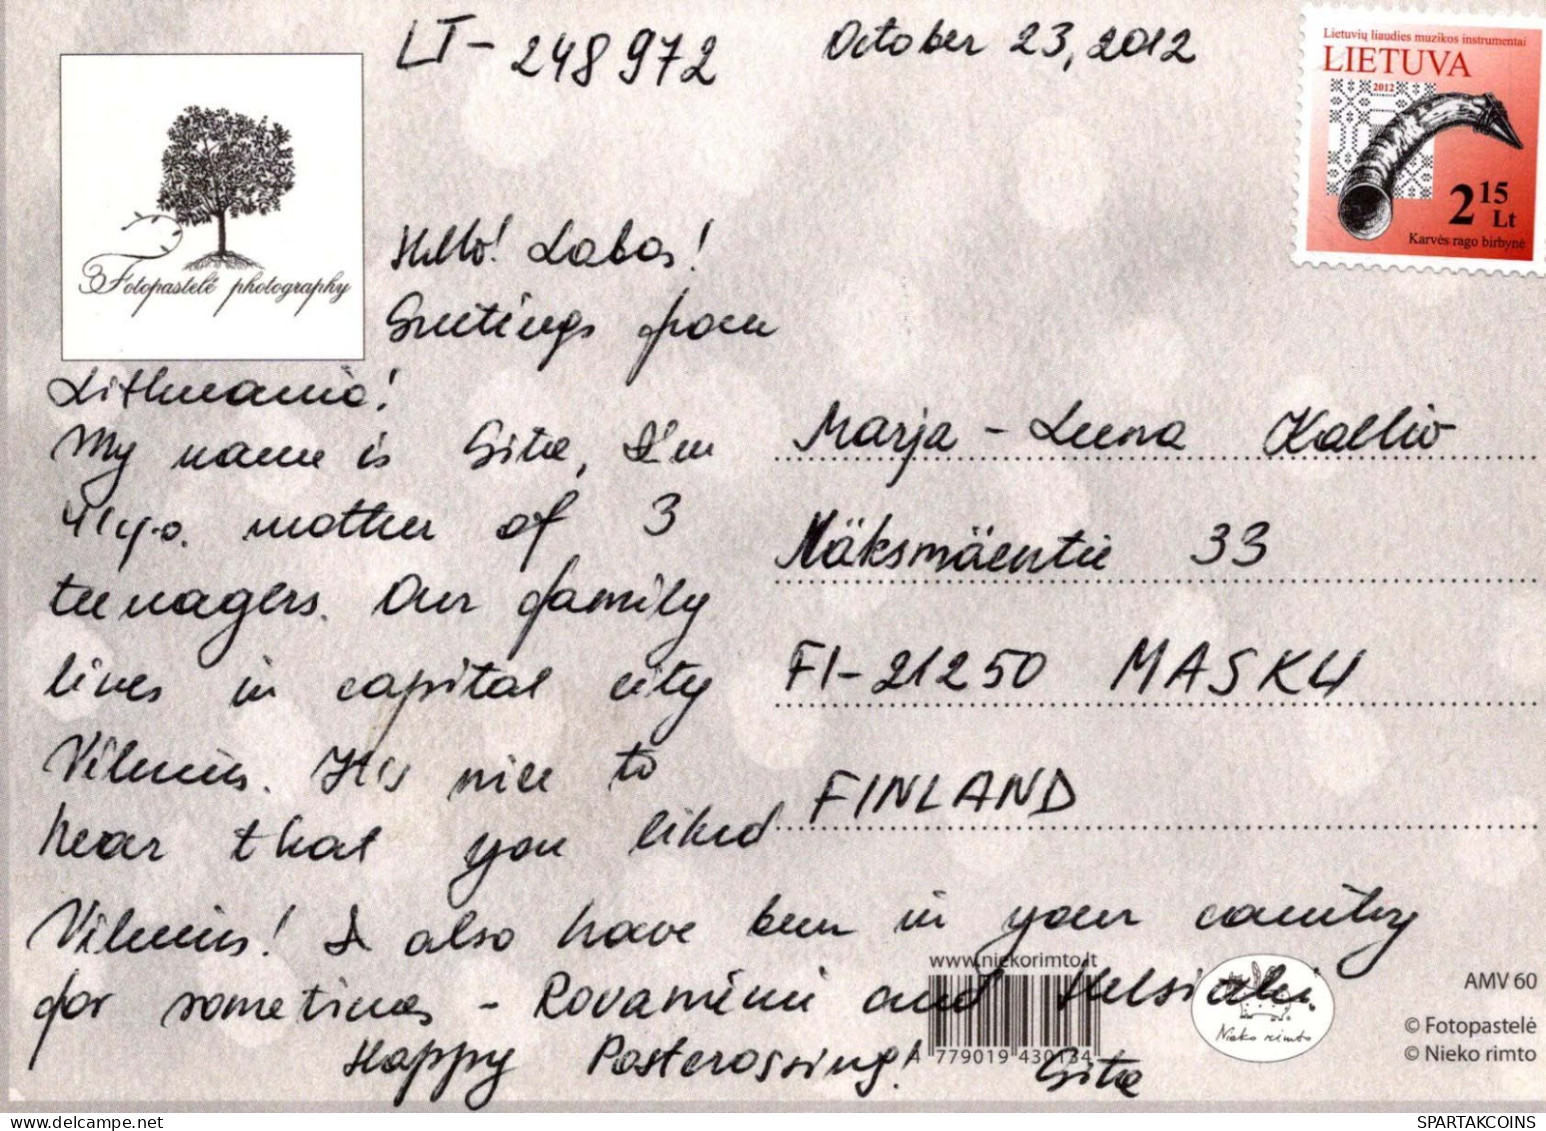 LT-248972 October 23, 2012
Lietuvių liaudies muzikos instrumentai
LIETUVA
2012
2 15 Lt
Karvės rago birbynė
Fotopastelė photography
Hello! Labas!
Greetings from
Lithuania!
My name is Gita, I'm
41 y.o. mother of 3
teenagers. Our family
lives in capital city
Vilnius. It's nice to
hear that you liked
Vilnius! I also have been in your country
for sometimes - Rovaniemi and Helsinki.
Happy Postcrossing! Gita
Marja-Leena Kallio
Näksmäentie 33
FI-21250 MASKU
FINLAND
www.niekorimto.lt
4 779019 430134
Nieko rimto
AMV 60
© Fotopastelė
© Nieko rimto
SPARTAKCOINS